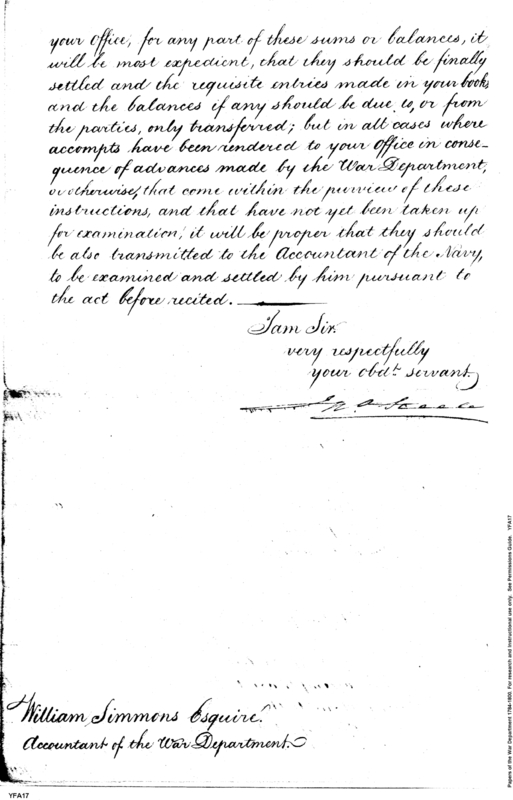 your Office, for any part of these sums or balances, it
will be most expedient, that they should be finally
settled and the requisite entries made in your books
and the balances if any should be due, to, or from
the parties, only transferred; but in all cases where
accompts have been rendered to your Office in conse-
quence of advances made by the War Department,
or otherwise, that come within the purview of these
instructions, and that have not yet been taken up
for examination, it will be proper that they should
be also transmitted to the Accountant of the Navy,
to be examined and settled by him pursuant to
the act before recited.
I am Sir.
very respectfully
your obdt. servant
Jno Steele
William Simmons Esquire.
Accountant of the War Department.
YFA17
Papers of the War Department 1784-1800. For research and instructional use only. See Permissions Guide. YFA17